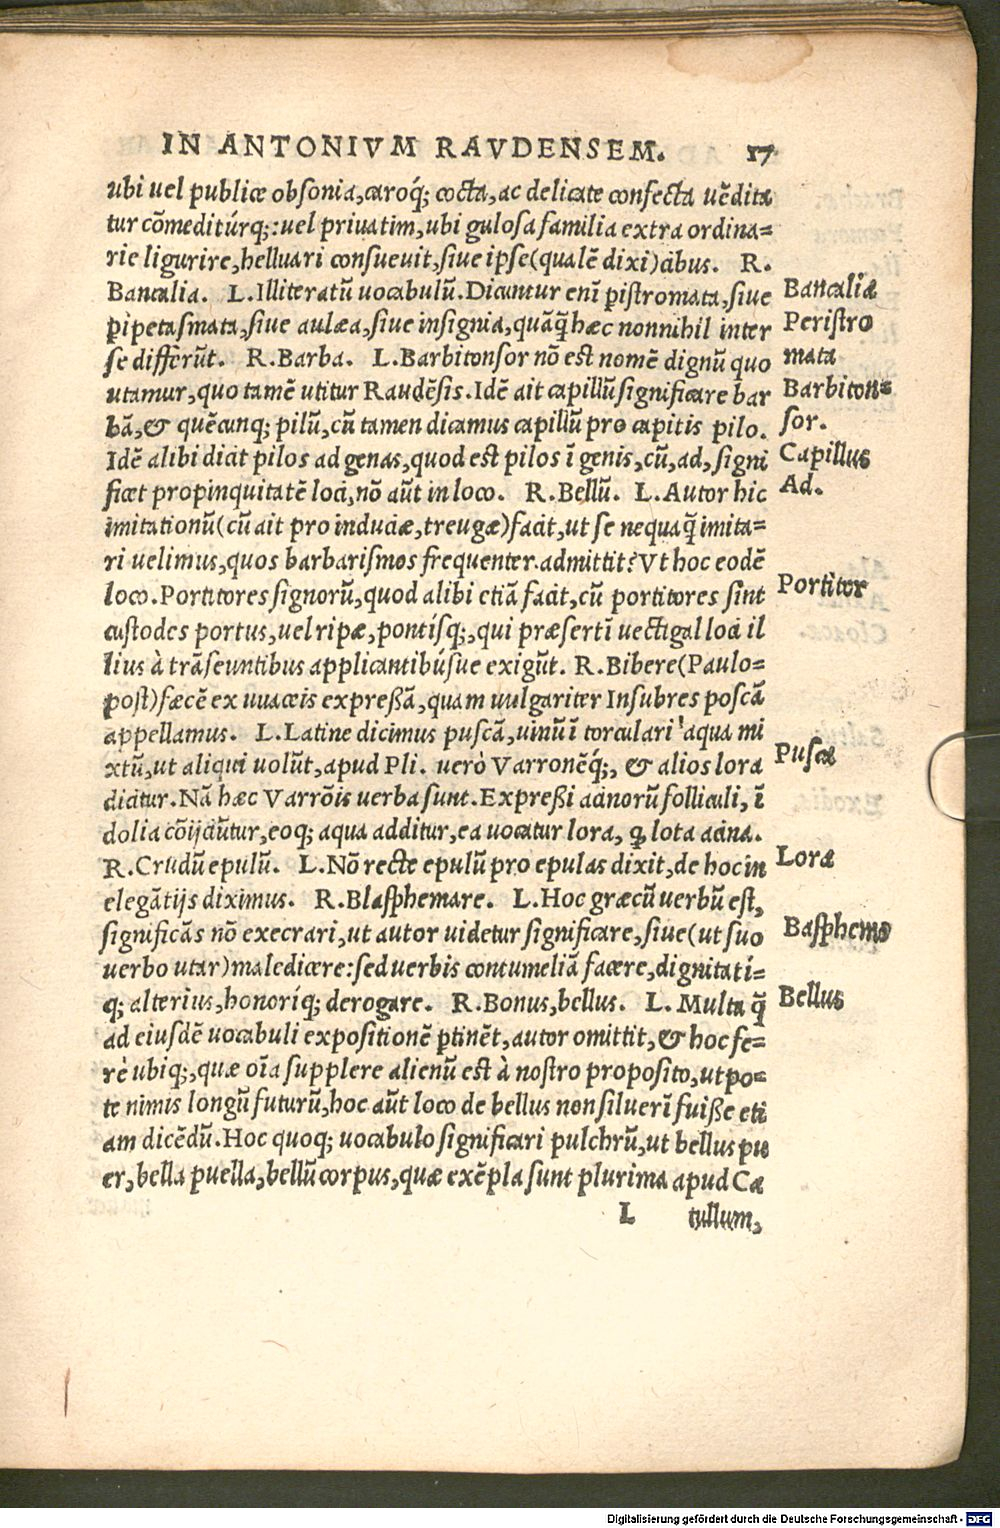 IN ANTONIVM RAVDENSEM. 17
ubi uel publicæ obsonia, caroq́; cocta, ac delicate confecta uẽdita
tur cõmeditúrq;: uel priuatim, ubi gulosa familia extra ordina=
rie ligurire, helluari consueuit, siue ipse (qualẽ dixi) cibus. R.
Bancalia. L. Illiteratũ uocabulũ. Dicuntur enĩ pistromata, siue
pipetasmata, siue aulæa, siue insignia, quãq̃ hæc nonnihil inter
se differũt. R. Barba. L. Barbitonsor nõ est nomẽ dignũ quo
utamur, quo tamẽ utitur Raudẽsis. Idẽ ait capillũ significare bar
bã, & quẽcunq; pilũ, cũ tamen dicamus capillũ pro capitis pilo.
Idẽ alibi dicit pilos ad genas, quod est pilos ĩ genis, cũ, ad, signi
ficet propinquitatẽ loci, nõ aũt in loco. R. Bellũ. L. Autor hic
imitationũ (cũ ait pro induciæ, treugæ) facit, ut se nequaq̃ imita=
ri uelimus, quos barbarismos frequenter admittit? Vt hoc eodẽ
loco. Portitores signorũ, quod alibi etiã facit, cũ portitores sint
custodes portus, uel ripæ, pontísq;, qui præsertĩ uectigal loci il
lius à trãseuntibus applicantibúsue exigũt. R. Bibere (Paulo=
post) fæcẽ ex uuaceis expreßã, quam uulgariter Insubres poscã
appellamus. L. Latine dicimus puscã, uinũ ĩ torculari aqua mi
xtũ, ut aliqui uolũt, apud Pli. uerò Varronẽq́;, & alios lora
dicitur. Nã hæc Varrõis uerba sunt. Expreßi acinorũ folliculi, ĩ
dolia cõijciũtur, eoq; aqua additur, ea uocatur lora, ꝙ lota acina.
R. Crudũ epulũ. L. Nõ recte epulũ pro epulas dixit, de hoc in
elegãtijs diximus. R. Blasphemare. L. Hoc græcũ uerbũ est,
significãs nõ execrari, ut autor uidetur significare, siue (ut suo
uerbo utar) maledicere: sed uerbis contumeliã facere, dignitati=
q; alterius, honoríq; derogare. R. Bonus, bellus. L. Multa q̃
ad eiusdẽ uocabuli expositionẽ ꝑtinẽt, autor omittit, & hoc fe=
rè ubiq;, quæ oĩa supplere alienũ est à nostro proposito, ut po=
te nimis longũ futurũ, hoc aũt loco de bellus non siluerĩ fuiße eti
am dicẽdũ. Hoc quoq; uocabulo significari pulchrũ, ut bellus pu
er, bella puella, bellũ corpus, quæ exẽpla sunt plurima apud Ca
L tullum,
Bancaliæ
Peristro
mata
Barbiton=
sor.
Capillus
Ad.
Portitor
Pusca
Lora
Basphemo
Bellus
Digitalisierung gefördert durch die Deutsche Forschungsgemeinschaft - DFG